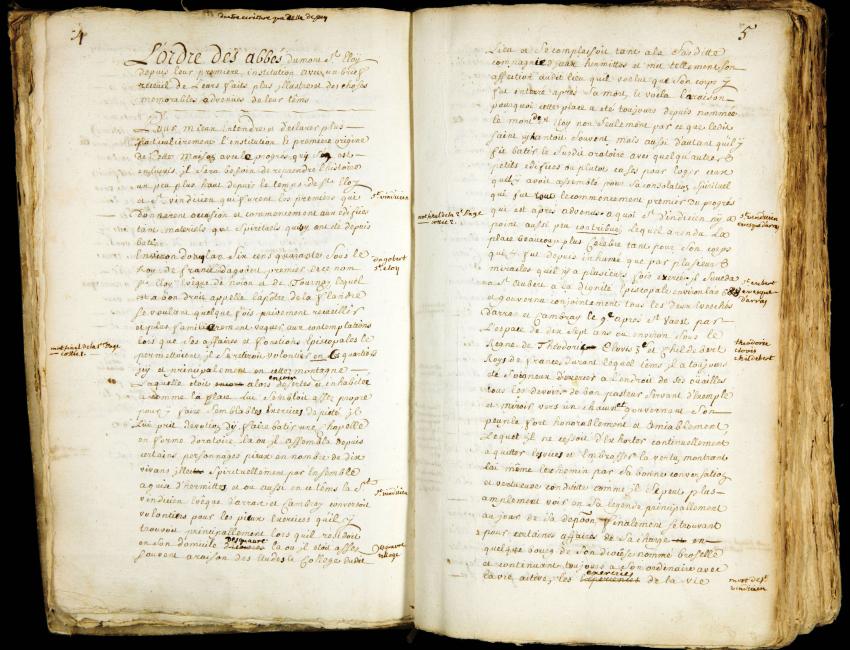 4
L'ordre des abbés du mont St. Eloy
depuis leur premiere institution avec un brief
recueil de Leurs faits plus illustres et choses
memorables advenues de leur téms
Pour mieux intendre et declarer plus
particulierement l'institution le premiere origine
de Cette Maison avec le progres qui s'en est
ensuyvi, il sera besoin de reprendre l'histoire
un peu plus haut depuis le temps de St. Eloy
et St. vindicien qui furent les premiers que
donnerent occasion et commencement aux edifices
tant materiels que spirituels qui y ont eté depuis
batis
St. vindicien
Environ l'an Six cens quarante Sous le
Roy de France dagobert premier de ce nom
St. Eloy Evêque de noion et de Tournay lequel
est a bon droit appellé l'apotre de la flandre
se voulant quelque fois privement recueillir
et plus familierement vaquer aux contemplations
lors que ses affaires et fonctions Episcopales le
permettoient, il se retiroit volontiers en ce quartier
icy et principalement en cette montagne
dagobert
St. eloy
Laquelle etoit encore alors deserte et inhabitée
et comme la place luy sembloit assez propre
pour y faire semblables exercices de pieté, il
luy prit devotion d'y faire batir une chapelle
en forme d'oratoire la ou il assembla depuis
certains personnages pieux en nombre de dix
vivans Spirituellement par Ensemble
a guise d'hermittes et ou aussi en ce téms la St.
vindicien Evêque d'arras et Cambray conversoit
volontiers pour les pieux exercices qu'il y
trouvoit principalement lors qu'il residoit
en son domicile la ou il etoit assez
souvent a raison des etudes le College dudit
St. vindicien
5
Lieu et se complaisoit tant a la susditte
compagnie d'eux hermittes et mit tellement son
affection audit lieu qu'il voulut que son corps y
fut enterré apres sa mort, et voila la raison
pourquoi cette place a eté toujours depuis nommée
le mont St. Eloy non seulement par ce que ledit
saint y hantoit souvent, mais aussi d'autant qu'il y
fit batir le susdit oratoire avec quelqu'autres
petits edifices ou plutot cases pour loger ceux
qu'il y avoit assemblé pour sa consolation spirituel
qui fut tout le commencement premier du progrès
qui est apres advenu a quoi St. vindicien n'y a
point aussi peu contribué Lequel a rendu La
place beaucoup plus Celebre tant pour son corps
que y fut depuis inhumé que par plusieurs
miracles qu'il y a plusieurs fois exercés il succeda
St. vindicien
evesque d'arras
a St. Aubert a la dignité Episcopale environ l'an
et gouverna conjointement tous les deux Eveschés
d'arras et Cambray le 9e apres St. Vaast par
l'espace de dix sept ans ou environ sous le
Regne de Theodoric Clovis 3e et Childebert
Roys de France, durant lequel téms il a toujours
eté soigneux d'exercer a l'endroit de ses ouailles
tous les devoirs de bon pasteur servant d'exemple
et miroir vers un chacun et gouvernant son
peuple fort honorablement et amiablement
Lequel il ne cessoit d'exhorter continuellement
a quitter les vices et embrasser la vertu, montrant
lui même le chemin par sa bonne conversation
et vertueuse conduite comme il se peut plus
amplement voir en sa legende principallement
au jour de sa deposition Finalement se trouvant
pour certaines affaires de sa charge en
quelque bourg de son diocese nommé brosselle
et continuant toujours a son ordinaire avec
la vie active, les exercices de la vie
St. aubert
evesque
d'arras
theodoric
clovis
childebert
mort de St.
vindicien